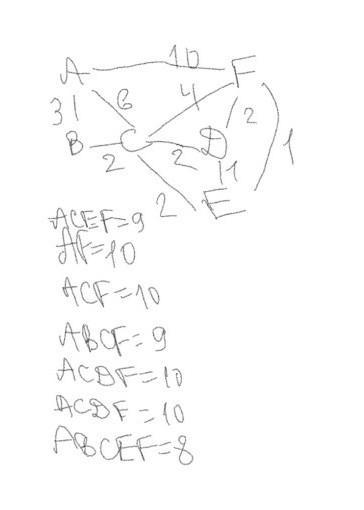 10
A F
31 6 4 2
B C D 1
2 2 11
2 E
ACEF=9
AF=10
ACF=10
ABCF=9
ACDF=10
ACDF=10
ABCEF=8